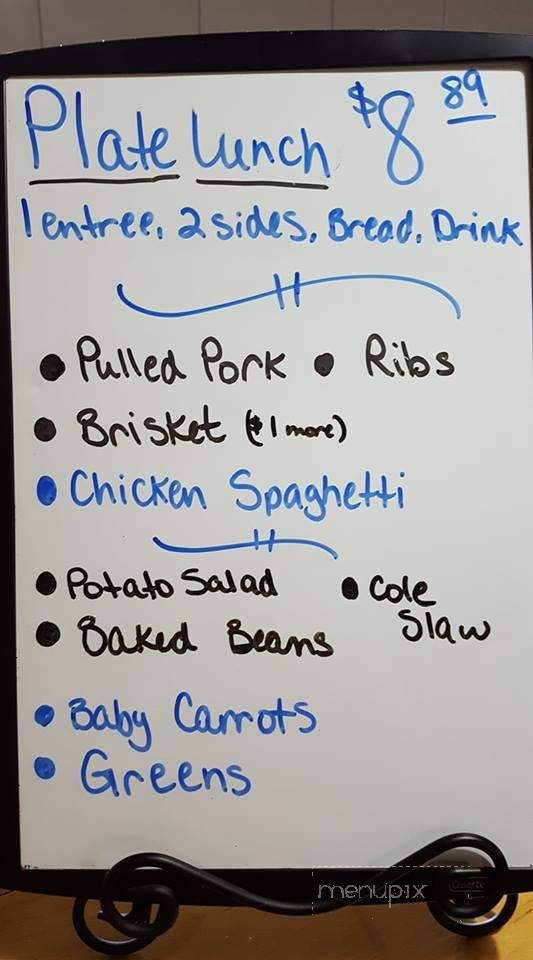 Plate Lunch $8 89
1 entree, 2 sides, Bread, Drink
• Pulled Pork • Ribs
• Brisket ($1 more)
• Chicken Spaghetti
• Potato Salad • Cole Slaw
• Baked Beans
• Baby Carrots
• Greens
menupix
Quartet